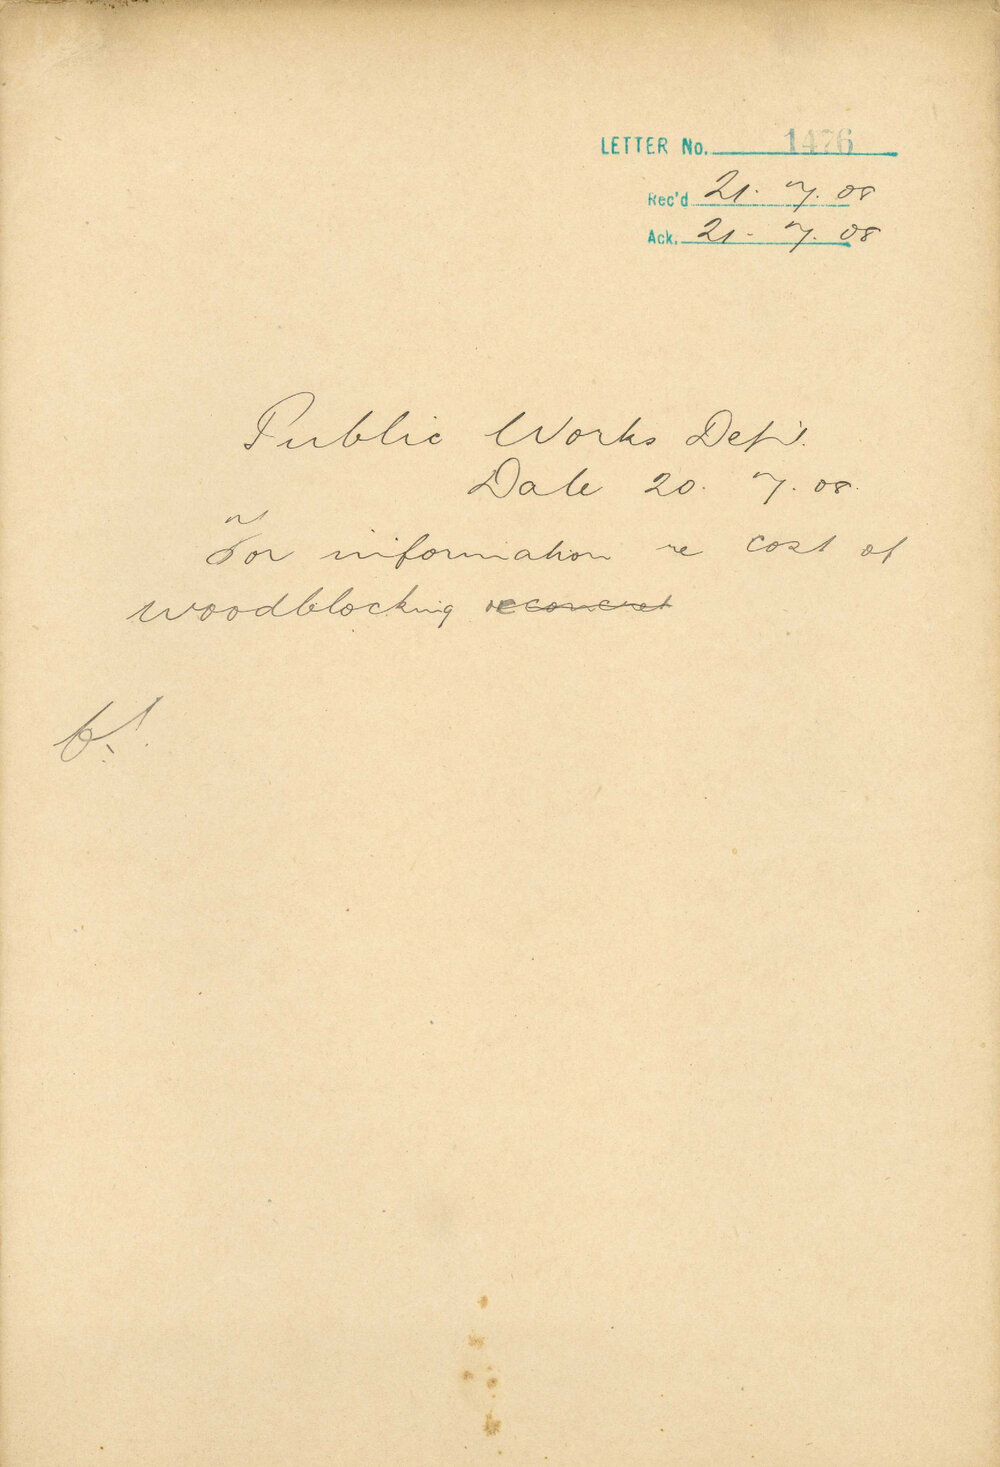 LETTER No. 1476
Rec'd 21. 7. 08
Ack. 21. 7. 08
Public Works Dep't.
Date 20. 7. 08.
For information re cost of
woodblocking re concret